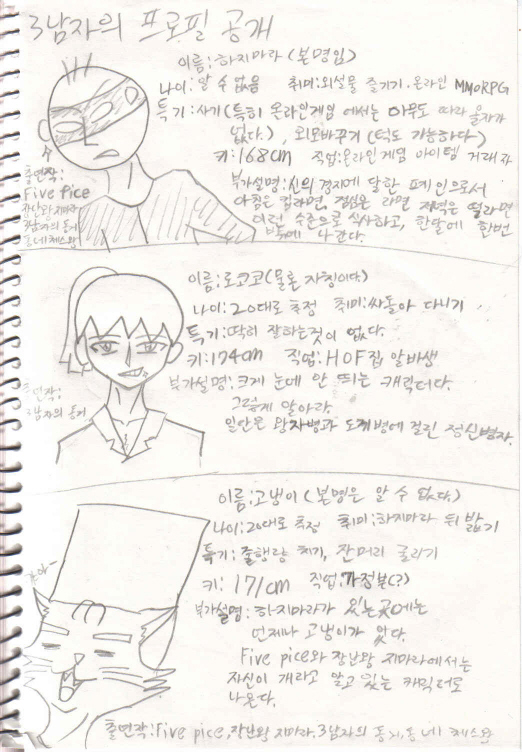 3남자의 프로필 공개
이름:하지마라(본명임)
나이:알 수 없음 취미:외설물 즐기기, 온라인 MMORPG
특기:사기(특히 온라인게임에서는 아무도 따라올자가
없다.), 외모바꾸기(턱도 가능하다)
키:168cm 직업:온라인게임 아이템 거래자
부가설명:신의 경지에 달한 폐인으로서
아침은 컵라면, 점심은 라면 저녁은 떡라면
이런 수준으로 식사하고, 한달에 한번
밖에 나간다.
출연작:
Five pice
장난왕 지마라
3남자의 동거
동네 체스왕
이름:로코코(물론 자칭이다.)
나이:20대로 추정 취미:싸돌아 다니기
특기:딱히 잘하는것이 없다.
키:174cm 직업:HOF집 알바생
부가설명:크게 눈에 안 띄는 캐릭터다.
그렇게 알아라.
일단은 왕자병과 도끼병에 걸린 정신병자.
출연작:
3남자의 동거
이름:고냉이(본명은 알 수 없다.)
나이:20대로 추정 취미:하지마라 뒤 밟기
특기:줄행랑 치기, 잔머리 굴리기
키:171cm 직업:가정부(?)
부가설명:하지마라가 있는곳에는
언제나 고냉이가 있다.
Five pice와 장난왕 지마라에서는
자신이 개라고 알고 있는 캐릭터로
나온다.
출연작:Five pice,장난왕 지마라,3남자의 동거,동네 체스왕